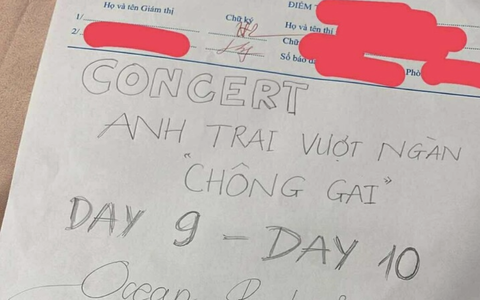 Họ và tên Giám thị
Chữ ký
ĐIỂM T
1/
Họ và tên thí
2/
Chữ
Số báo d
Phò
CONCERT
ANH TRAI VƯỢT NGÀN
"CHÔNG GAI"
DAY 9 - DAY 10
Ocean